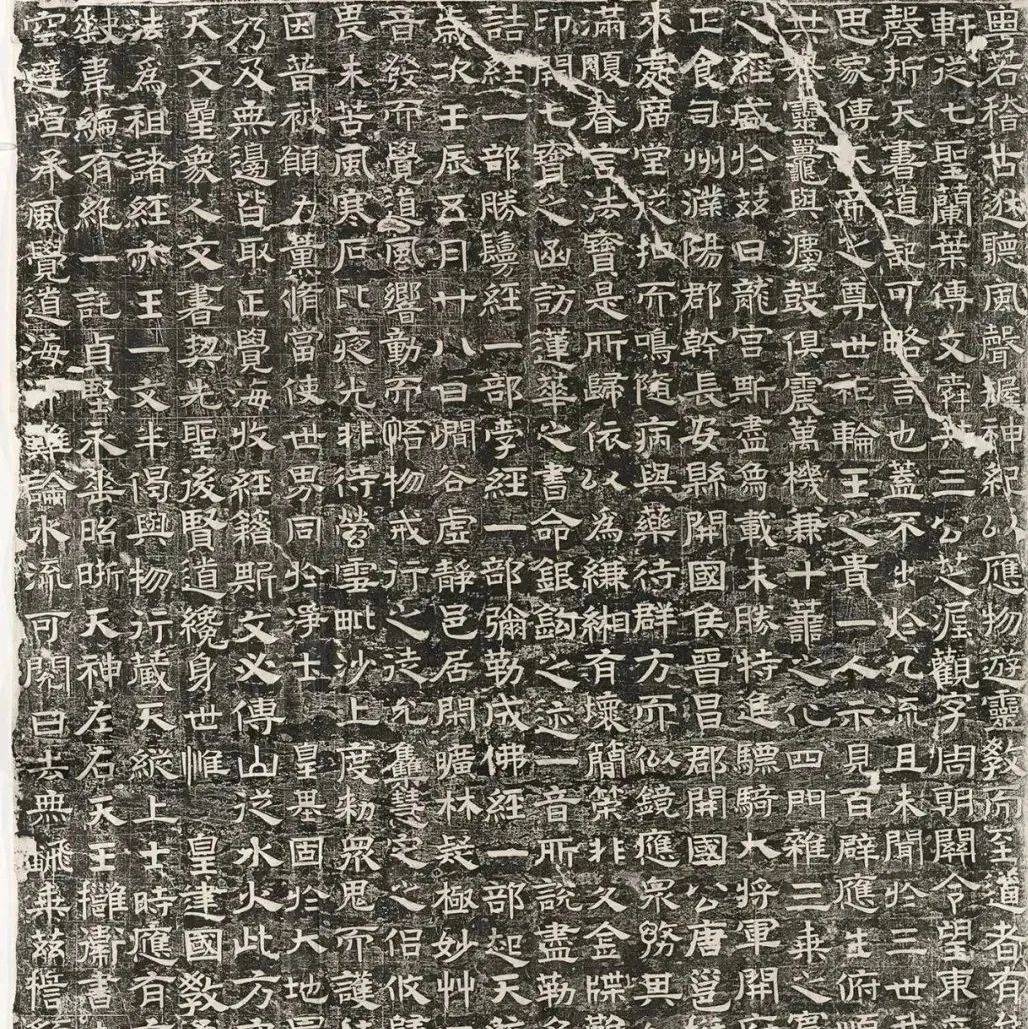 粤若稽世逖聽風聲握神紀以應物遊靈教而至道者有
軒從七聖蘭葉傳文舜與三公芝渥觀字周朝關令望東
磬折天書道或可略言也蓋不出於九流且未聞於三世
思家傳天帝之尊世祚輪王之貴一人示見百辟應生俯
共其靈鼉與鏖鼓俱震萬機兼十善之化四門雜三乘之
之經盛於茲日龍宮斯盡鳥載未勝特進驃騎大將軍開
正食司州濮陽郡幹長安縣開國侯晉昌郡開國公唐邕
來處廣堂從扣而鳴隨病與藥待群方而似鏡應衆務其
滿腹眷言法寶是所歸依以為縑緗有壞簡策非久金牒
印開七寶之函訪蓮華之書命銀鉤之迹一音所說盡勒
詰經一部勝鬘經一部孛經一部彌勒成佛經一部起天
歲次壬辰五月廿八日澗谷虛靜邑居閑曠林疑極妙艸
音發而覺道風響動而悟物戒行之徒允集慧定之侶攸
畏末苦風寒石比夜光非待螢雪毗沙上度勅眾鬼而護
因普被願力薰脩當使世界同於淨土皇基固於大地
乃及無邊皆取正覺海收經籍斯文必傳山從水火此方
天文星象人文書契先聖後賢道纔身世惟皇建國教
法為祖諸經亦王一文半偈與物行藏天縱上士時應有
執韋編有絕一託貞堅永垂昭晰天神左右天王擁衛書
空避喧承風覺道海難論水流可閱日去無乘茲